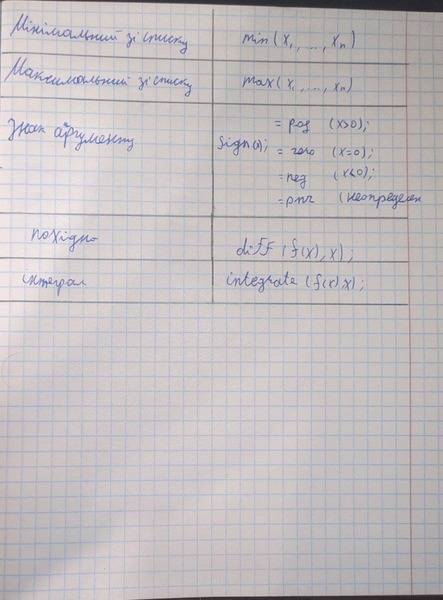 Мінімальний зі списку min(x₁, ..., xₙ)
Максимальний зі списку max(x₁, ..., xₙ)
Знак аргументу sign(x); = pos (x>0);
= zero (x=0);
= neg (x<0);
= pnz (неопределен
похідна diff (f(x), x);
інтеграл integrate (f(x), x);